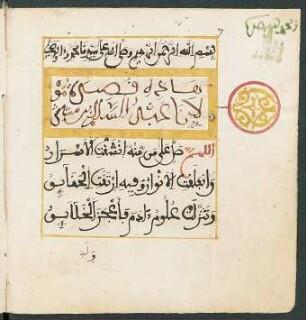 بسم الله الرحمن الرحيم وصلى الله على سيدنا محمد وآله
هذه
لانا عبد السلام بن مشيش
اللهم صل على من منه انشقت الاسرار
وانفلقت الانوار وفيه ارتقت الحقايق
وتنزلت علوم ءادم فاعجز الخلايق
وله